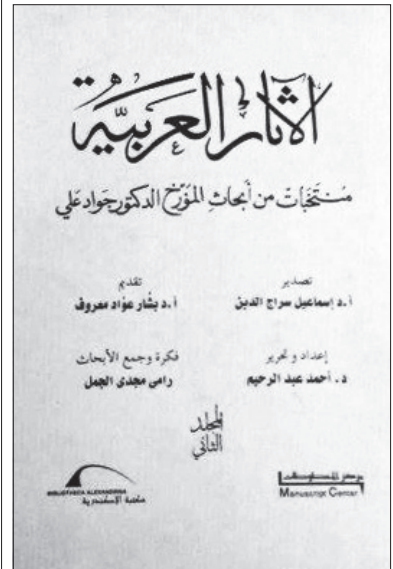 الآثار العربية
منتخبات من أبحاث المؤرخ الدكتور جواد علي
تصدير
أ.د إسماعيل سراج الدين
تقديم
أ.د بشار عواد معروف
إعداد وتحرير
د. أحمد عبد الرحيم
فكرة وجمع الأبحاث
رامي مجدي الجمل
المجلد
الثاني
مركز المخطوطات
Manuscript Center
BIBLIOTHECA ALEXANDRINA
مكتبة الإسكندرية